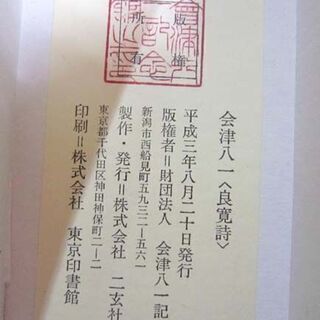 会津八一〈良寛詩〉
平成三年八月二十日発行
版権者＝財団法人　会津八一記
新潟市西船見町五九三二ー五六一
製作・発行＝株式会社　二玄社
東京都千代田区神田神保町二ー二
印刷＝株式会社　東京印書館
版権
所有